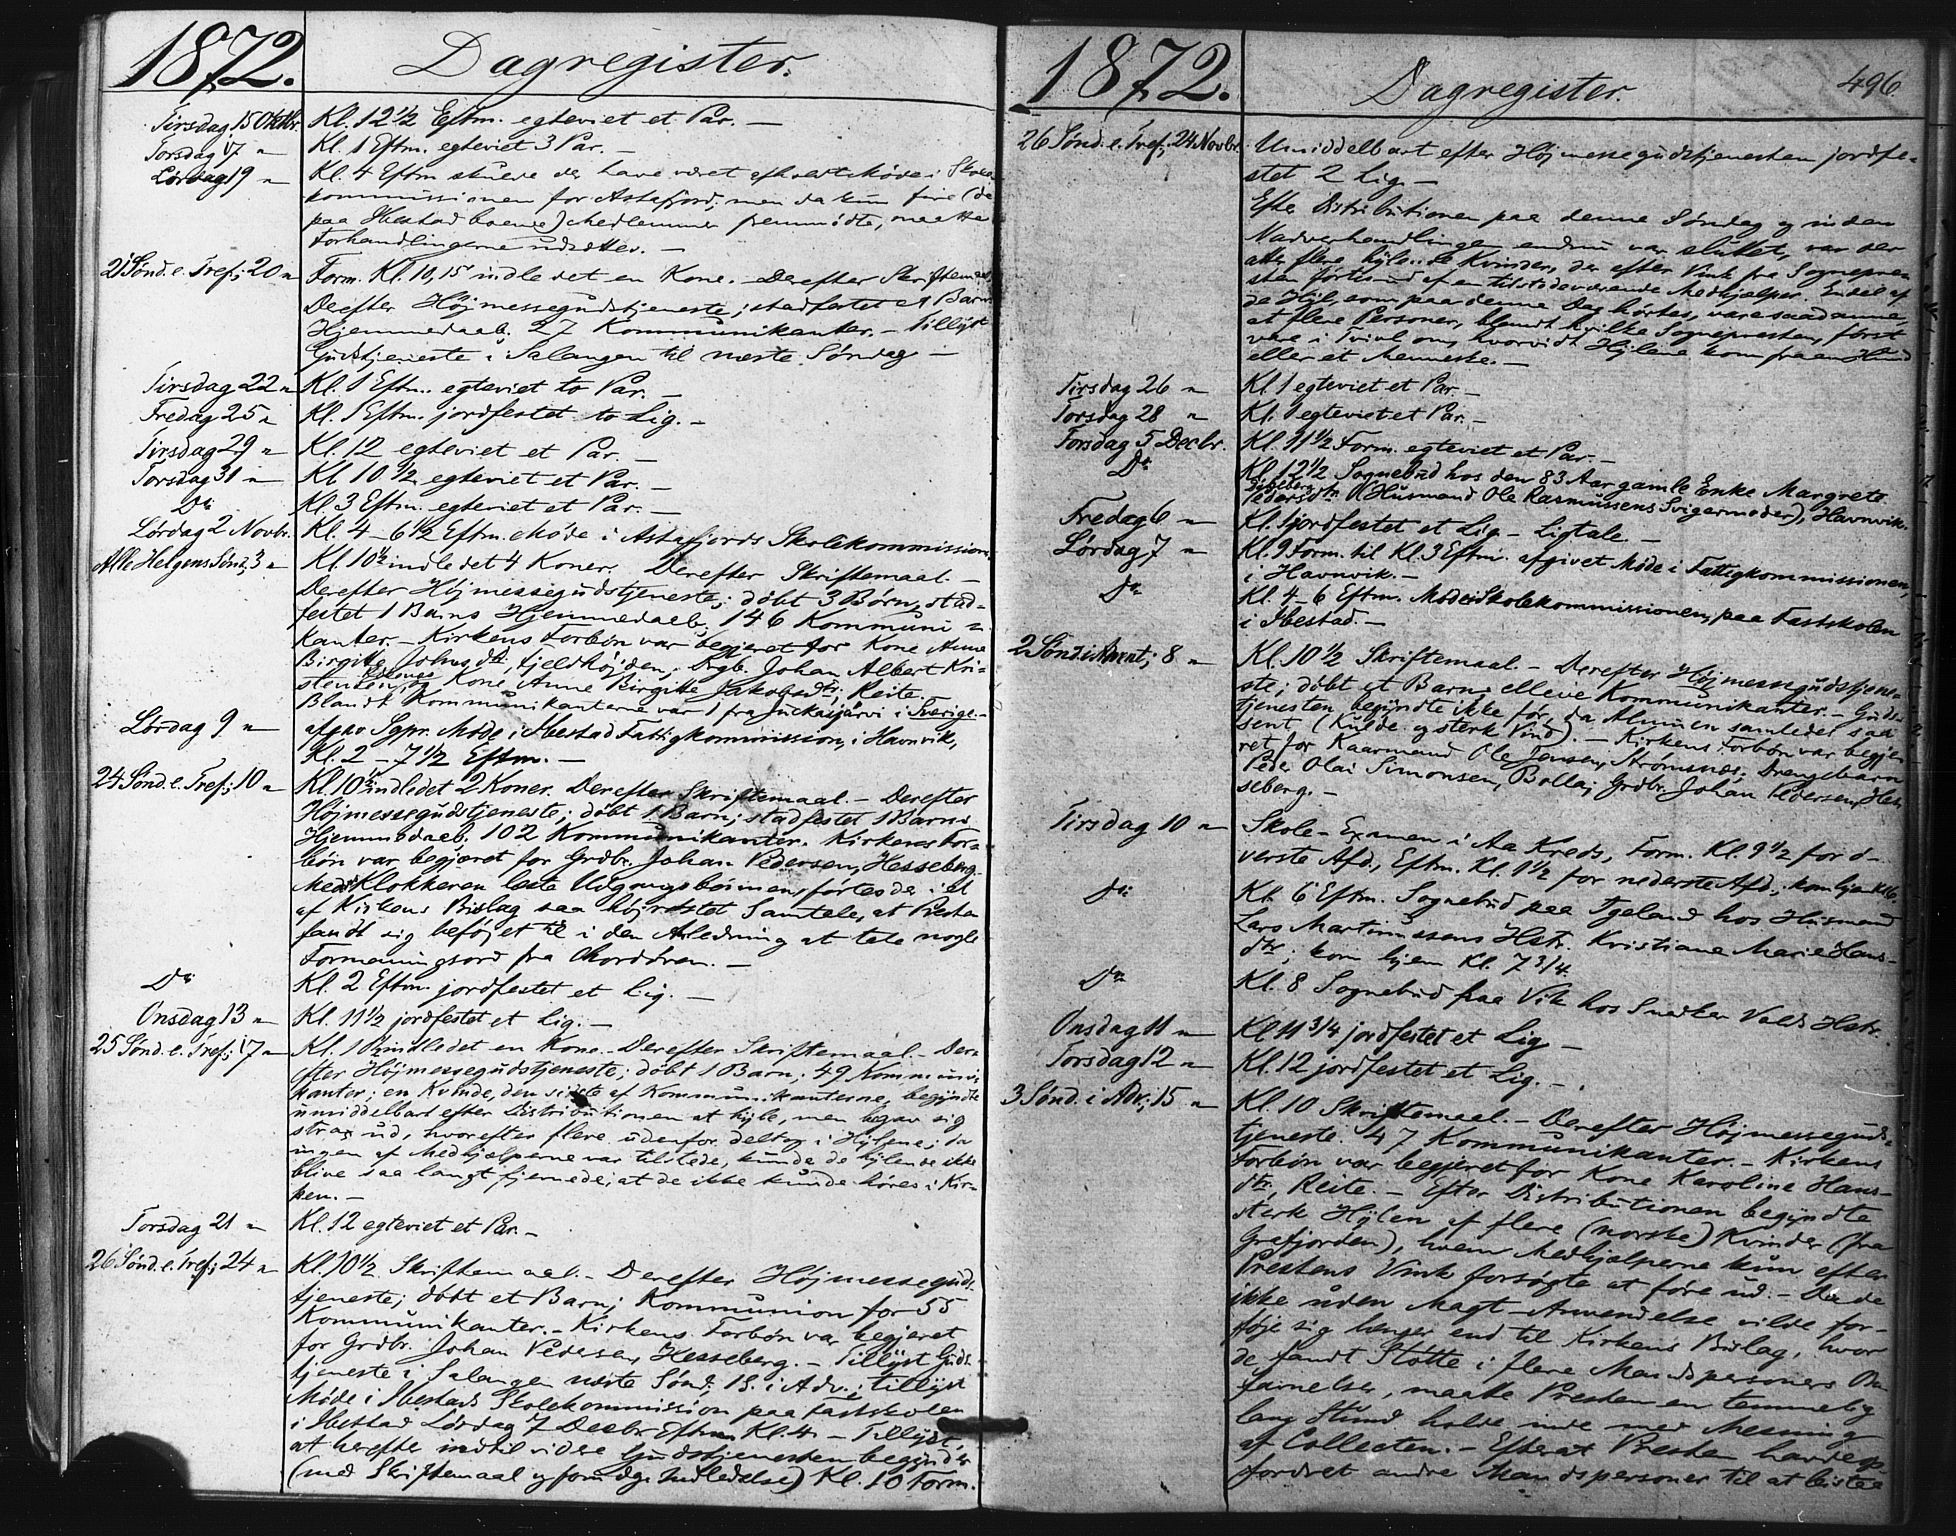 1872. Dagregister.
Tirsdag 15 Oktbr. Kl. 12 1/2 Eftm. egteviet et Par. —
Torsdag 17 " Kl. 1 Eftm. egteviet 3 Par. —
Lørdag 19 " Kl. 4 Eftm skulde der have været afholdt Møde i Skole
kommissionen for Astafjord, men da kun fire (de
paa Ibestad boende) Medlemmer fremmødte, maatte
Forhandlingerne udsættes. —
21 Sønd. e. Tref; 20 " Form. Kl. 10,15 indledet en Kone. — Derefter Skriftemaal
Derefter Højmessegudstjeneste; stadfestet et Barns
Hjemmedaab. 27 Kommunikanter. — Tillyst
Gudstjeneste i Salangen til næste Søndag —
Tirsdag 22 " Kl. 1 Eftm. egteviet to Par. —
Fredag 25 " Kl. 1 Eftm. jordfestet to Lig. —
Tirsdag 29 " Kl. 12 egteviet et Par. —
Torsdag 31 " Kl 10 1/2 egteviet et Par. —
Do Kl 3 Eftm. egteviet et Par. —
Lørdag 2 Novbr. Kl. 4 – 6 1/2 Eftm. Møde i Astafjords Skolekommission.
Alle Helgens Sønd, 3 " Kl. 10 1/2 indledet 4 Koner. Derefter Skriftemaal. —
Derefter Højmessegudstjeneste; døbt 3 Børn, stad-
festet 1 Barns Hjemmedaab. 146 Kommuni-
kanter. — Kirkens Forbøn var begjeret for Kone Anne
Birgitte Johnsdtr, Fjeldhøjden, Johan Albert Kri-
stensen, og Kone Anne Birgitte Jakobsdtr, Reite.
Blandt Kommunikanterne var 1 fra Juckasjärvi i Sverige. —
Lørdag 9 " afgav Sgpr. Møde i Ibestad Fattigkommission, i Havnvik,
Kl. 2 – 7 1/2 Eftm. —
24 Sønd. e. Tref; 10 " Kl. 10 1/2 indledet 2 Koner. Derefter Skriftemaal. — Derefter
Højmessegudstjeneste; døbt 1 Barn; stadfestet 1 Barns
Hjemmedaab. 102 Kommunikanter. Kirkens For-
bøn var begjæret for Grdbr. Johan Pedersen, Hesseberg. —
Medens Klokkeren læste Udgangsbønnen, førtes der i et
af Kirkens Bislag saa højrøstet Samtale, at Presten
fandt sig beføjet til i den Anledning at tale nogle
Formaningsord fra Chordøren. —
Do Kl. 2 Eftm. jordfestet et Lig. —
Onsdag 13 " Kl. 11 1/2 jordfestet et Lig. —
25 Sønd. e. Tref; 17 " Kl. 10 1/2 indledet en Kone. — Derefter Skriftemaal. — Der-
efter Højmessegudstjeneste; døbt 1 Barn; 49 Kommuni-
kanter; en Kvinde, den sidste af Kommunikanterne, begyndte
umiddelbart efter Distributionen at hyle, men begav sig
strax ud, hvorefter flere udenfor deltog i Hylene; da
ingen af Medhjælperne var tilstede, kunde de hylende ikke
blive saa langt fjernede, at de ikke kunde høres i Kir-
ken. —
Torsdag 21 " Kl. 12 egteviet et Par. —
26 Sønd. e. Tref; 24 " Kl. 10 1/2 Skriftemaal. — Derefter Højmessegud-
tjeneste; døbt et Barn; Kommunion for 55
Kommunikanter. — Kirkens Forbøn var begjeret
for Grdbr. Johan Pedersen, Hesseberg. — Tillyst Guds-
tjeneste i Salangen næste Sønd; 1 S. i Adv.; tillyst
Møde i Ibestads Skolekommission paa Fastskolen
i Ibestad Lørdag 7 Decbr Eftm. Kl. 4. — Tillyst,
at herefter indtil videre Gudstjenesten begynder
(med Skriftemaal og Indledelse) Kl. 10 Form.
1872. Dagregister. 496
26 Sønd. e. Tref; 24 Novbr. Umiddelbart efter Højmessegudstjenesten jordfe-
stet 2 Lig. —
Efter Distributionen paa denne Søndag og inden
Nadverhandlingen endnu var sluttet, var der
atter flere hylende Kvinder, der efter Vink fra Sognepræ-
sten førtes ud af en tilstedeværende Medhjælper. Endel af
de Hyl, som paa denne Dag hørtes, vare saadanne,
at flere Personer, blandt hvilke Sognepresten, først
vare i Tvivl om, hvorvidt Hylene kom fra en Hund
eller et Menneske. —
Tirsdag 26 " Kl. 1 egteviet et Par. —
Torsdag 28 " Kl. 1 egteviet et Par. —
Torsdag 5 Decbr. Kl. 11 1/2 Form. egteviet et Par. —
Do Kl. 12 1/2 Sognebud hos den 83 Aar gamle Enke Margrete
Pedersdtr (Husmand Ole Rasmussens Svigermoder), Havnvik.
Fredag 6 " Kl. 1 jordfestet et Lig — Ligtale. —
Lørdag 7 " Kl. 9 Form. til Kl. 3 Eftm. afgivet Møde i Fattigkommissionen,
i Havnvik. —
Do Kl. 4–6 Eftm. Møde i Skolekommissionen, paa Fastskolen
i Ibestad. —
2 Sønd. i Advent; 8 " Kl. 10 1/2 Skriftemaal. — Derefter Højmessegudstjene-
ste; døbt et Barn; elleve Kommunikanter. — Guds-
tjenesten begyndte ikke før, da Almuen samledes saa
sent (Kulde og sterk Vind). — Kirkens Forbøn var begje-
ret for Kaarmand Ole Jensen, Strømsnes; Drengebarn
Peder Olai Simonsen, Bolla; Grdbr. Johan Pedersen, Hes-
seberg. —
Tirsdag 10 " Skole-Examen i Aa Kreds, Form. Kl. 9 1/2 for ø-
verste Afd., Eftm. Kl. 1 1/2 for nederste Afd.; kom hjem Kl. 6.
Do Kl. 6 Eftm. Sognebud paa Tgeland hos Husmand
Lars Martinussens Hstr. Kristiane Marie Hans-
dtr; kom hjem Kl. 7 3/4.
Do Kl. 8 Sognebud paa Vik hos Snedker Hstr.
Onsdag 11 " Kl 11 3/4 jordfestet et Lig —
Torsdag 12 " Kl. 12 jordfestet et Lig. —
3 Sønd. i Adv; 15 " Kl. 10 Skriftemaal. — Derefter Højmesseguds-
tjeneste. 47 Kommunikanter. — Kirkens
Forbøn var begjeret for Kone Karoline Hans-
dtr, Reite. — Efter Distributionen begyndte
sterk Hylen af flere (norske) Kvinder (fra
Grafjorden), hvem Medhjælperne kun efter
Prestens Vink forsøgte at føre ud. — Da de
ikke uden Magt-Anvendelse vilde for-
føje sig længer end til Kirkens Bislag, hvor
de fandt Støtte i flere Mandspersoners
maatte Presten en temmelig
lang Stund holde inde med Messning
af Collecten. — Efterat Presten havde op-
fordret andre Mandspersoner til at bistaa